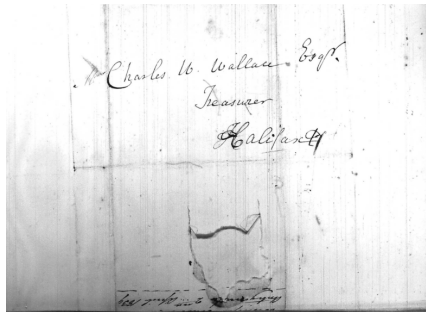 Charles W. Wallace Esqr.
Treasurer
Halifax